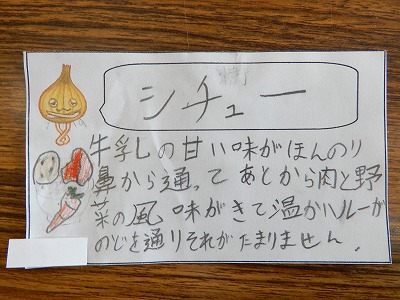 シチュー
牛乳しの甘い味がほんのり
鼻から通ってあとから肉と野
菜の風味がきて温かいルーが
のどを通りそれがたまりません。